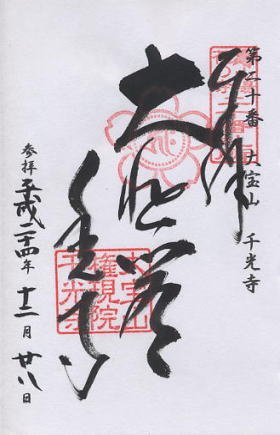 第二十番 大宝山 千光寺
奉拝
大悲閣
千光寺
参拝 平成二十四年 十二月 廿八日
大宝山
権現院
千光寺